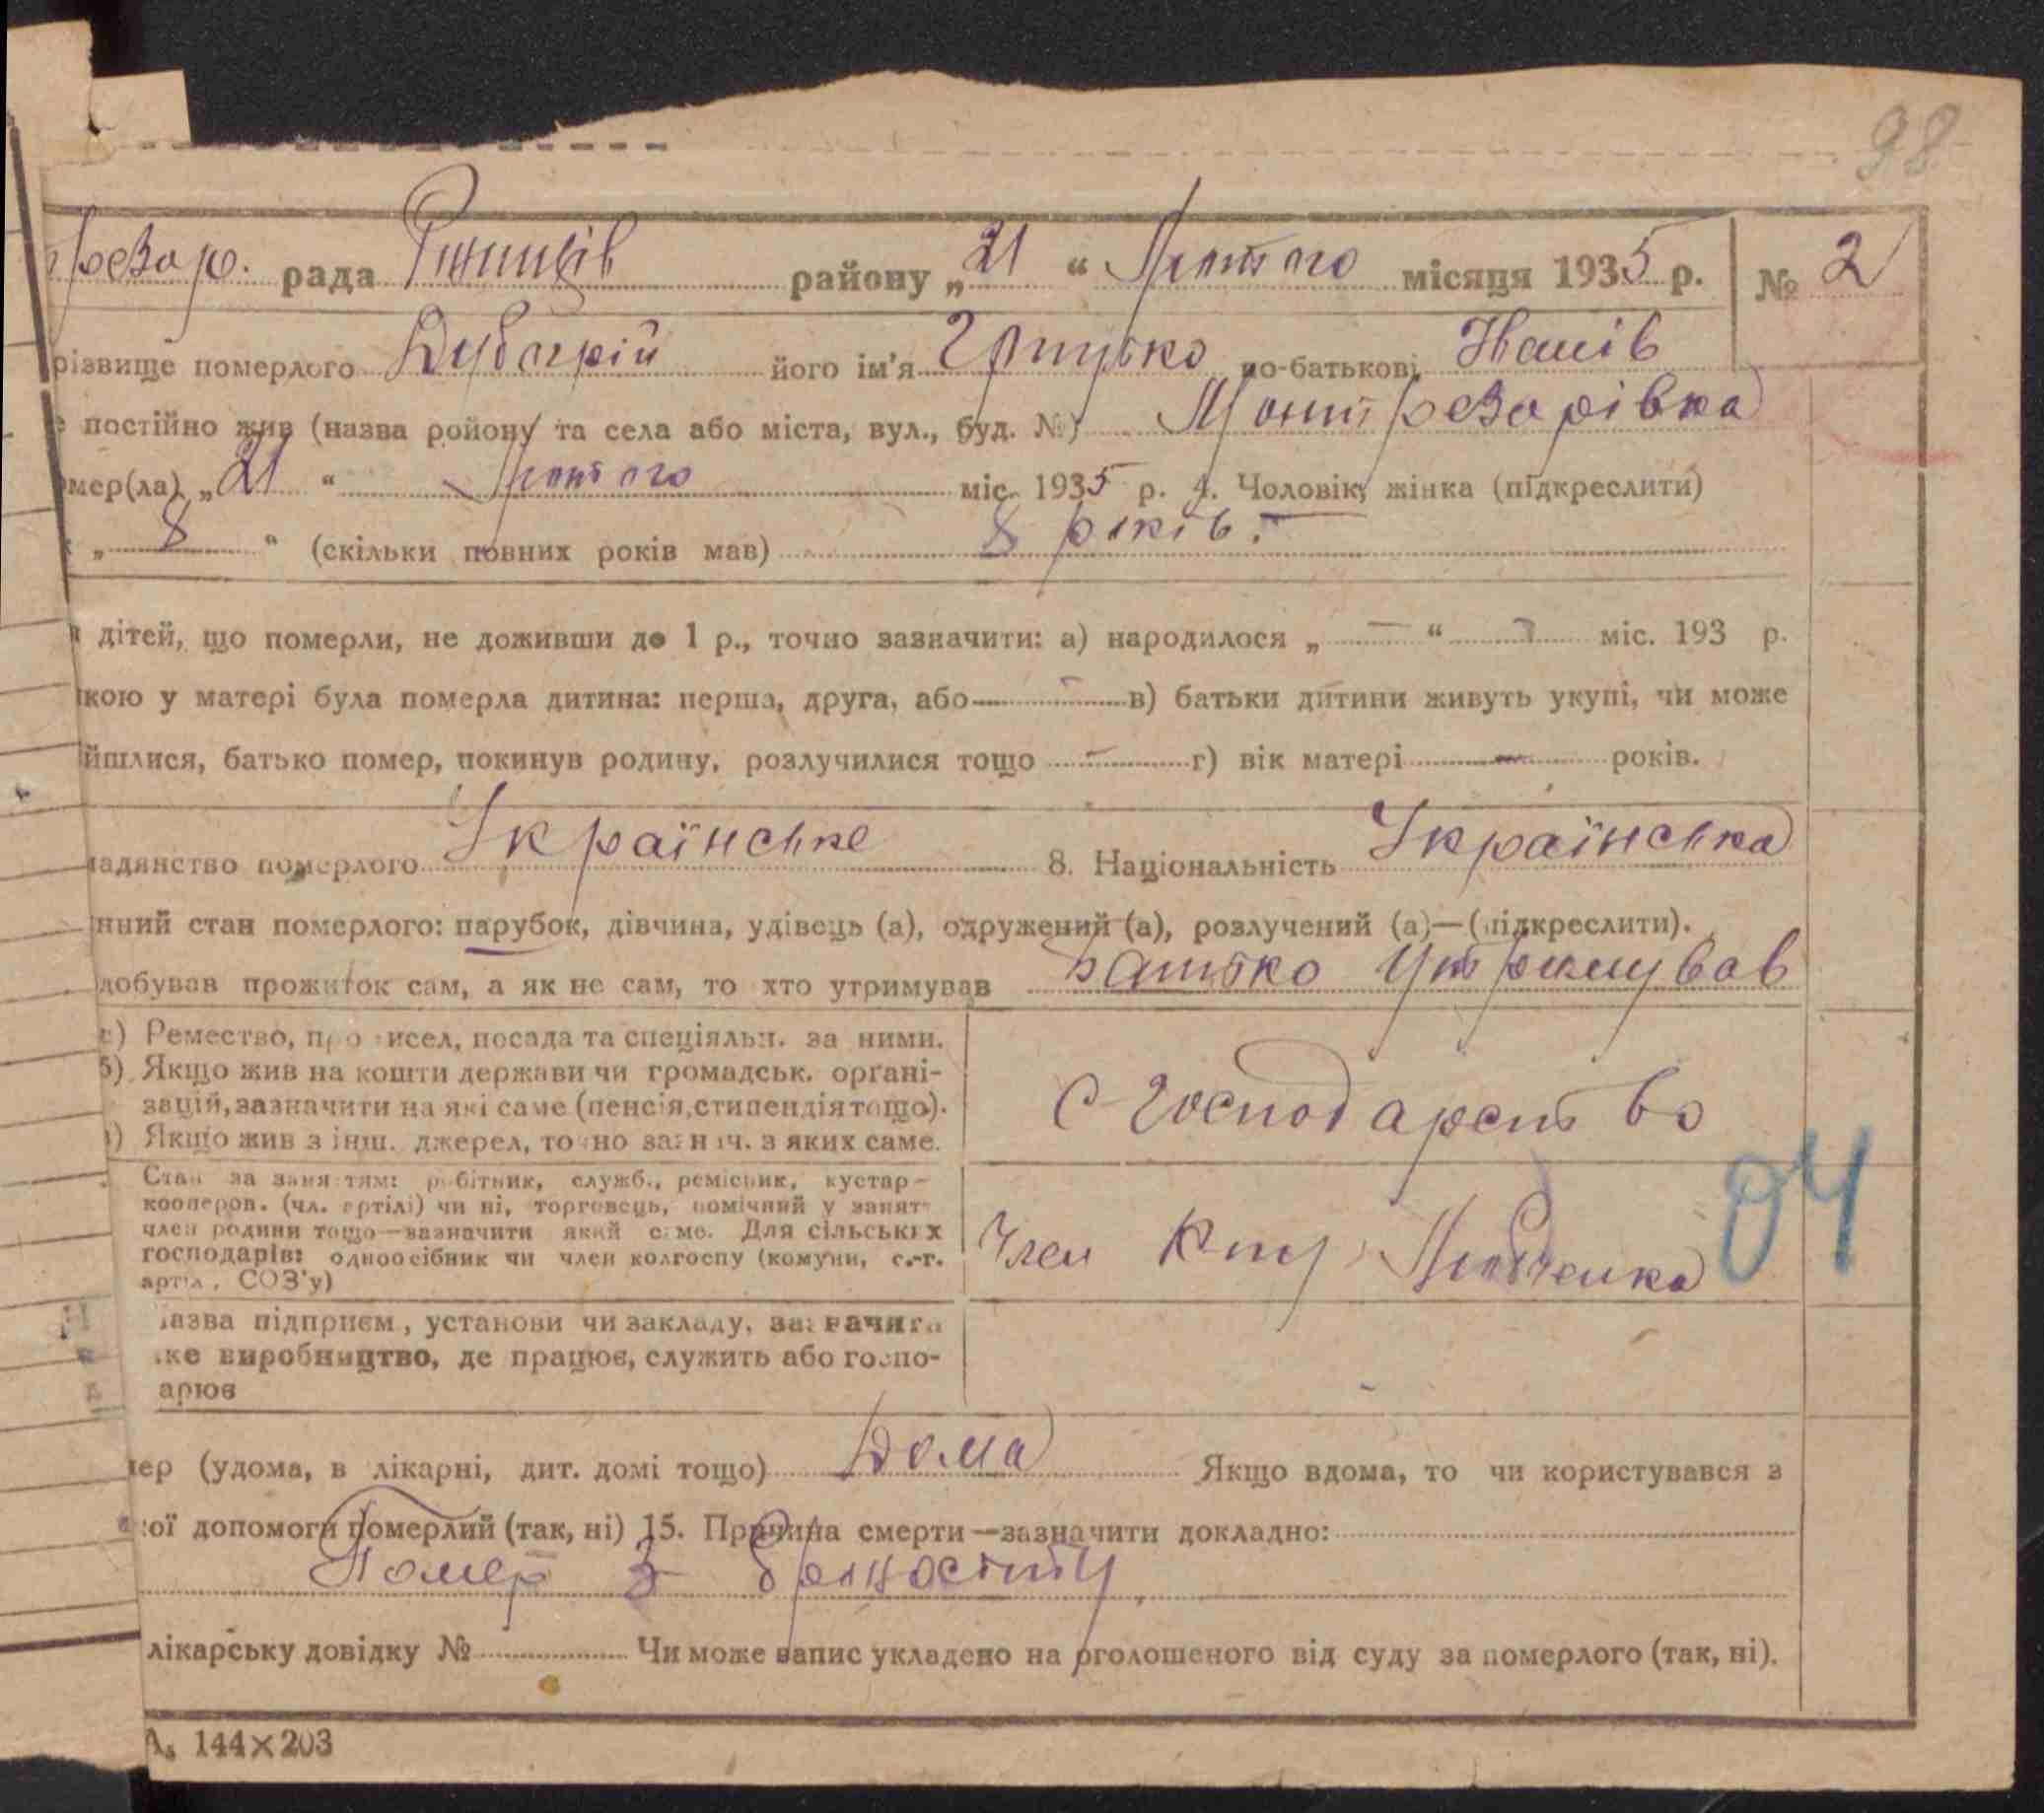 98
резар. рада Ржищів району „21“ Лютого місяця 1935 р. № 2
різвище померлого його ім'я Грицько по-батькові
постійно жив (назва ройону та села або міста, вул., буд. №) Монтрезарівка
мер(ла) „21“ Лютого міс. 1935 р. 4. Чоловік, жінка (підкреслити)
„8“ (скільки повних років мав) 8 років.
дітей, що померли, не доживши до 1 р., точно зазначити: а) народилося „ — “ — міс. 193 р.
кою у матері була померла дитина: перша, друга, або — в) батьки дитини живуть укупі, чи може
йшлися, батько помер, покинув родину, розлучилися тощо — г) вік матері — років.
адянство померлого Українське 8. Національність Українська
нний стан померлого: парубок, дівчина, удівець (а), одружений (а), розлучений (а)—(підкреслити).
добував прожиток сам, а як не сам, то хто утримував Батько утримував
а) Ремество, промисел, посада та спеціяльн. за ними.
б) Якщо жив на кошти держави чи громадськ. орґані-
зацій, зазначити на які саме (пенсія, стипендія тощо).
) Якщо жив з інш. джерел, точно зазнач. з яких саме.
с-господарство
Стан за заняттям: робітник, служб., ремісник, кустар-
кооперов. (чл. артілі) чи ні, торговець, помічний у занят-
член родини тощо—зазначити який саме. Для сільських
господарів: одноосібник чи член колгоспу (комуни, с.-г.
артіл., СОЗ'у)
Член
04
азва підприєм., установи чи закладу, зазначити
ке виробництво, де працює, служить або госпо-
арює
ер (удома, в лікарні, дит. домі тощо) Дома Якщо вдома, то чи користувався з
кої допомоги померлий (так, ні) 15. Причина смерти—зазначити докладно:
Помер з
лікарську довідку № Чи може запис укладено на оголошеного від суду за померлого (так, ні).
А₅ 144×203